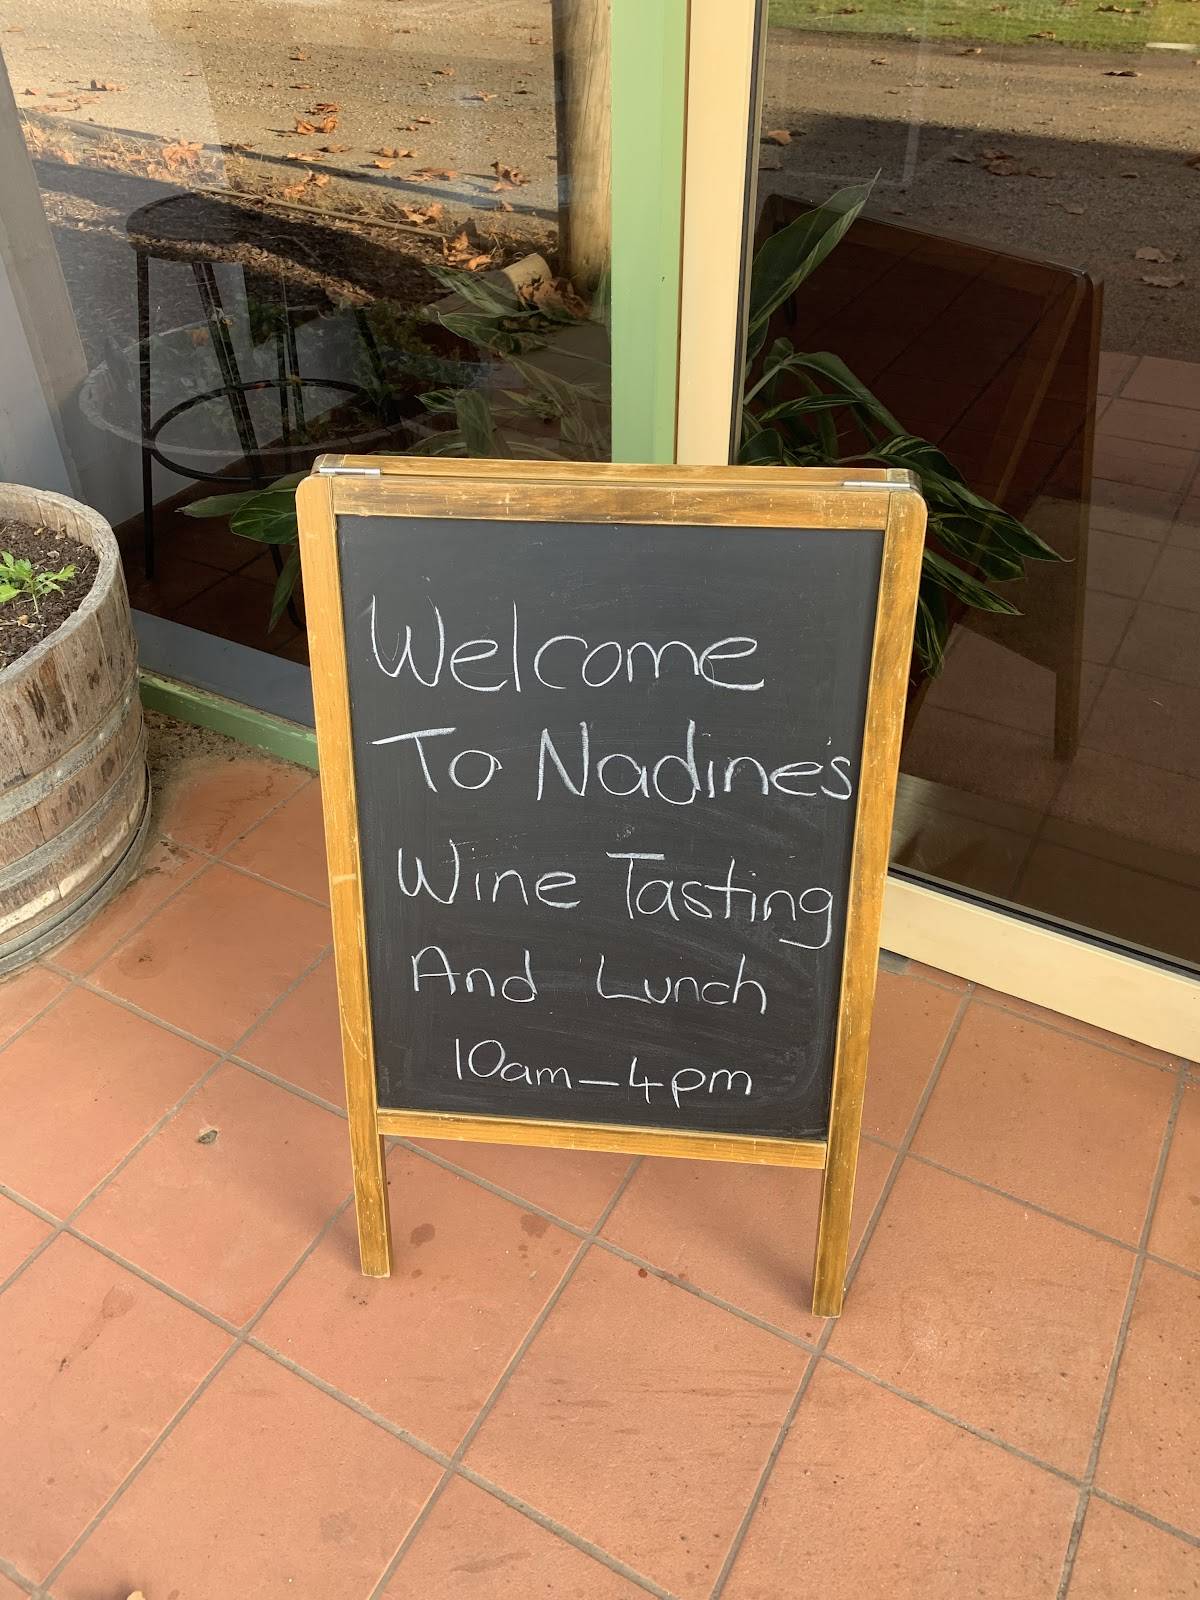 Welcome
To Nadine's
Wine Tasting
And Lunch
10am - 4pm